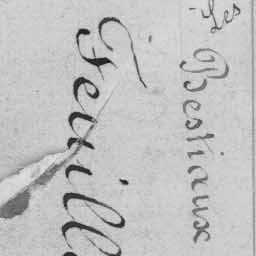 Bestiaux
Feuill